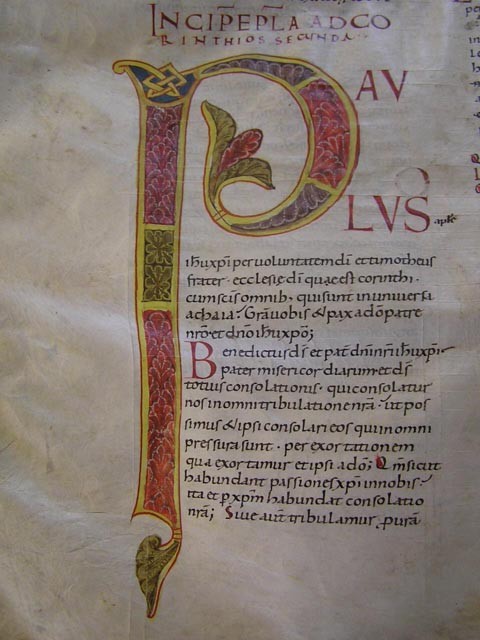 INCIP̄ EPL̄A AD CO
RINTHIOS SECUNDA
PAV
LVS apłs
ihuxp̄i per voluntatem dī et timotheus
frater · ecclesie dī quae est corinthi ·
cum scis omnib· qui sunt in universa
achaia · Gra vobis & pax a dō patre
nrō et dnō ihu xpō;
Benedictus ds̄ et pat̄ dnī nrī ihu xpī ·
pater misericordiarum et ds̄
totius consolationis · qui consolatur
nos in omni tribulatione nrā · ut pos
simus & ipsi consolari eos qui in omni
pressura sunt · per exortationem
qua exortamur et ipsi a dō; Qm̄ sicut
habundant passiones xpī in nobis ·
ita et p xpm̄ habundat consolatio
nrā; Sive aut̄ tribulamur p urā